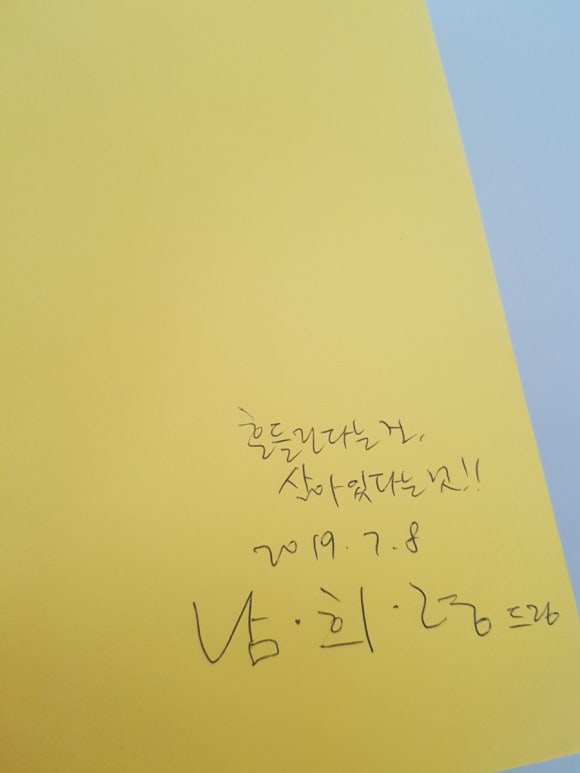 흔들린다는 건,
살아있다는 것!!
2019. 7. 8
남·희·령 드림